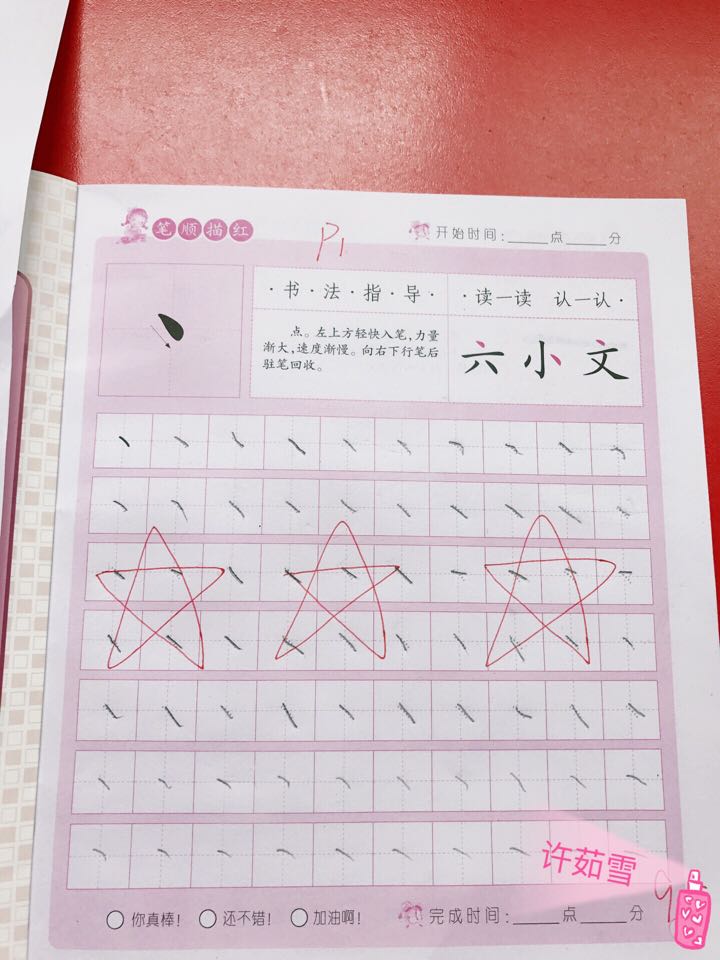 笔顺描红
P1
开始时间:_____点_____分
·书·法·指·导·
·读一读 认一认·
点。左上方轻快入笔,力量
渐大,速度渐慢。向右下行笔后
驻笔回收。
六小文
许茹雪
○你真棒! ○还不错! ○加油啊!
完成时间:_____点_____分